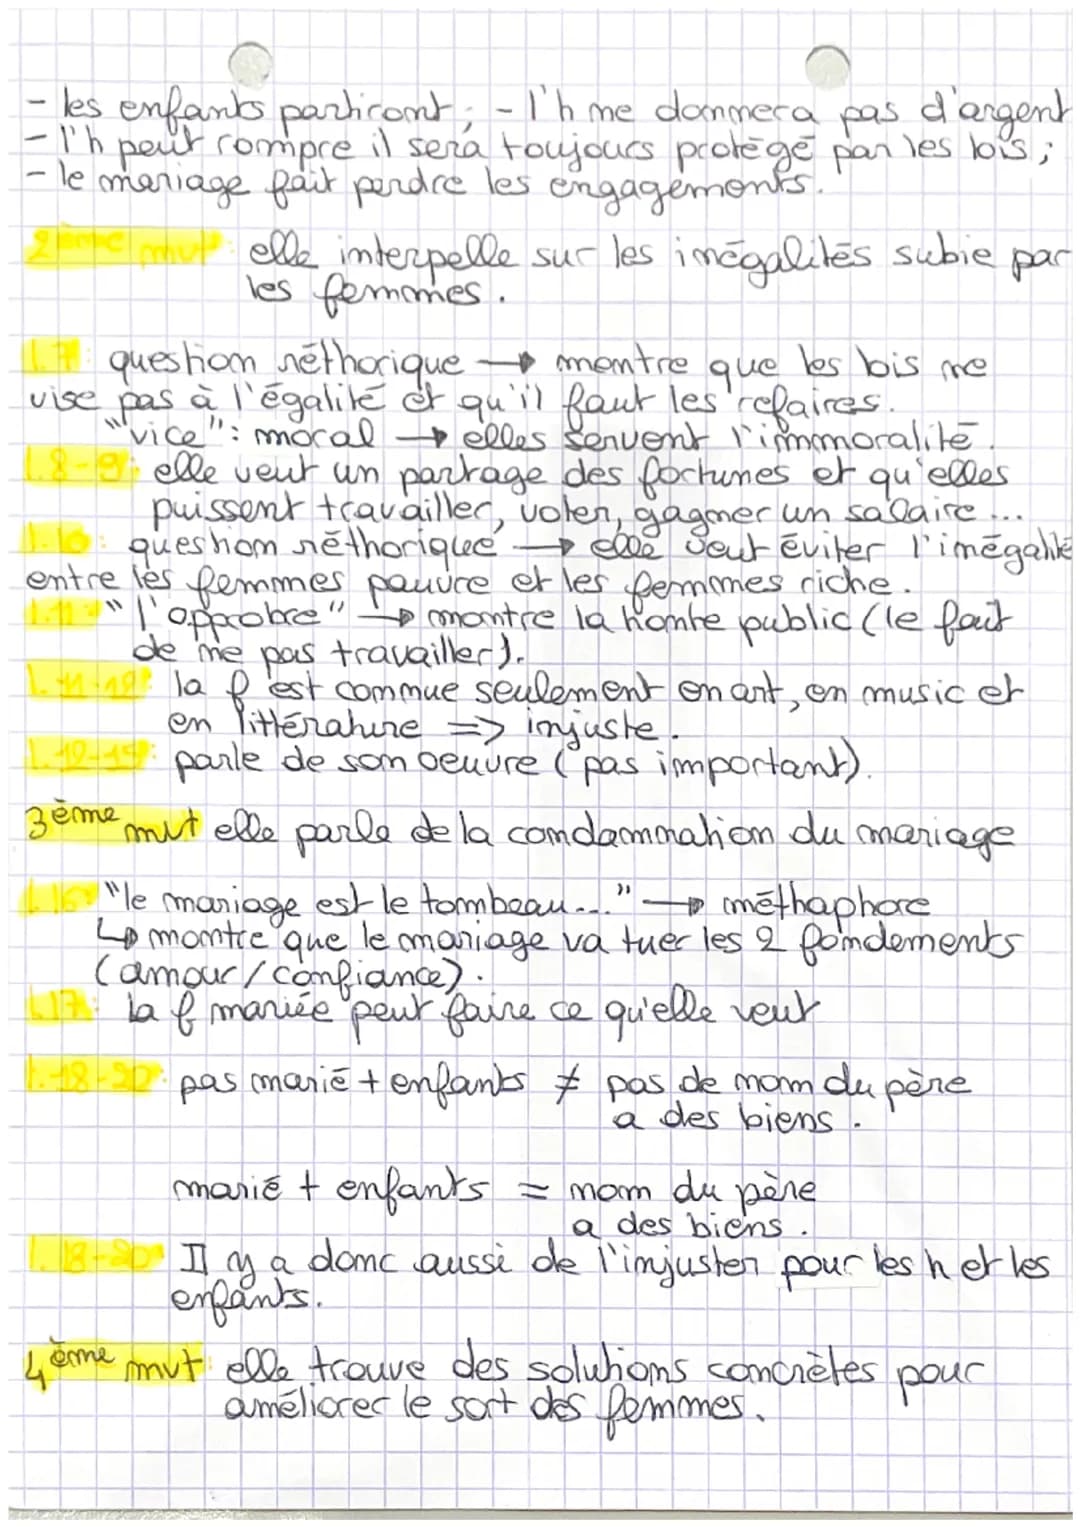 - les enfants partiront ; - l'h ne donnera pas d'argent
- l'h peut rompre il sera toujours protégé par les lois ;
- le mariage fait perdre les engagements.
2ème mvt : elle interpelle sur les inégalités subie par
les femmes .
l.7 : question réthorique → montre que les lois ne
vise pas à l'égalité et qu'il faut les refaires.
"vice" : moral → elles servent l'immoralité .
l.8-9 : elle veut un partage des fortunes et qu'elles
puissent travailler, voter, gagner un salaire ...
l.10 : question réthorique → elle veut éviter l'inégalité
entre les femmes pauvre et les femmes riche .
l.11 "l'opprobre" → montre la honte public (le fait
de ne pas travailler).
l.11-12 : la f est connue seulement en art, en music et
en littérature => injuste .
l.12-15 : parle de son oeuvre ( pas important).
3ème mvt elle parle de la condamnation du mariage
l.16 "le mariage est le tombeau..." → méthaphore
↳ montre que le mariage va tuer les 2 fondements
(amour / confiance) .
l.17 : la f mariée peut faire ce qu'elle veut
l.18-20 : pas marié + enfants ≠ pas de nom du père
a des biens .
marié + enfants = nom du père
a des biens .
l.18-20 Il y a donc aussi de l'injuster pour les h et les
enfants.
4ème mvt : elle trouve des solutions concrètes pour
améliorer le sort des femmes.